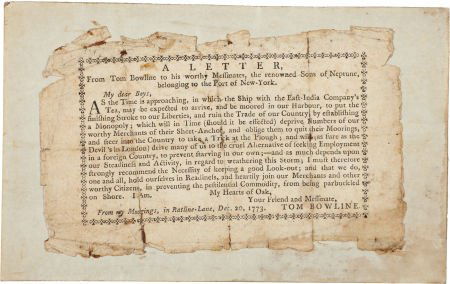 A LETTER,
From Tom Bowline to his worthy Messmates, the renowned Sons of Neptune,
belonging to the Port of New-York.
My dear Boys,
AS the Time is approaching, in which the Ship with the East-India Company's
Tea, may be expected to arrive, and be moored in our Harbour, to put the
finishing Stroke to our Liberties, and ruin the Trade of our Country, by establishing
a Monopoly; which will in Time (should it be effected) deprive Numbers of our
worthy Merchants of their Sheet-Anchor, and oblige them to quit their Moorings,
and steer into the Country to take a Trick at the Plough; and will (as sure as the
Devil's in London) drive many of us to the cruel Alternative of seeking Employment
in a foreign Country, to prevent starving in our own;—and as much depends upon
our Steadiness and Activity, in regard to weathering this Storm; I must therefore
strongly recommend the Necessity of keeping a good Look-out; and that we do,
one and all, hold ourselves in Readiness, and heartily join our Merchants and other
worthy Citizens, in preventing the pestilential Commodity, from being parbuckled
on Shore. I Am, My Hearts of Oak,
Your Friend and Messmate,
From my Moorings, in Ratline-Lane, Dec. 20, 1773. TOM BOWLINE.